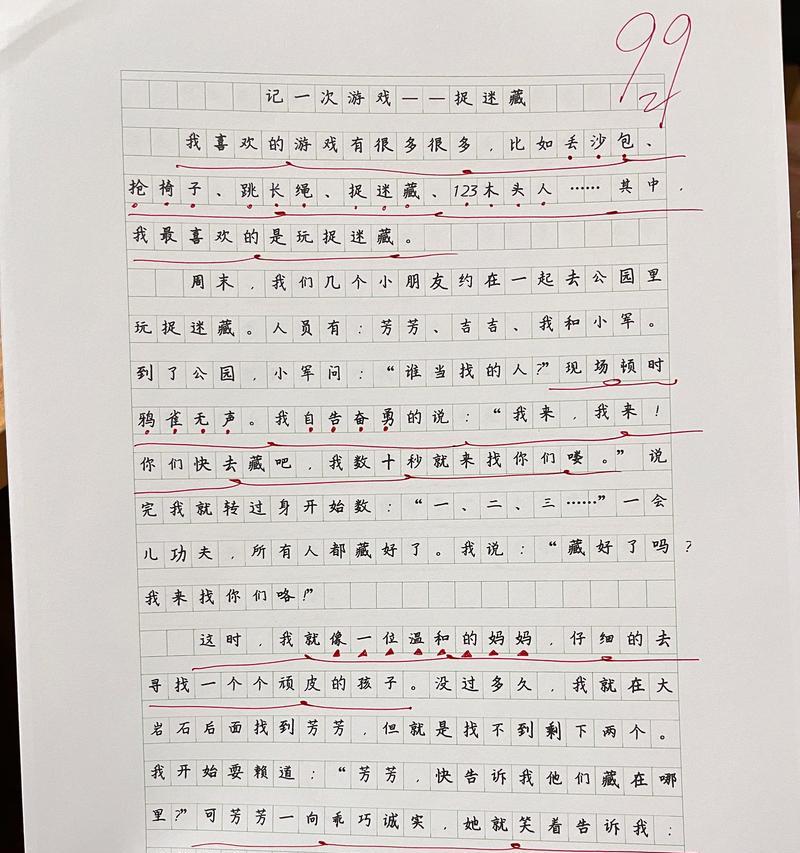 99
记一次游戏——捉迷藏
我喜欢的游戏有很多很多，比如丢沙包、
抢椅子、跳长绳、捉迷藏、123木头人……其中，
我最喜欢的是玩捉迷藏。
周末，我们几个小朋友约在一起去公园里
玩捉迷藏。人员有：芳芳、吉吉、我和小军。
到了公园，小军问：“谁当找的人？”现场顿时
鸦雀无声。我自告奋勇的说：“我来，我来！
你们快去藏吧，我数十秒就来找你们喽。”说
完我就转过身开始数：“一、二、三……”一会
儿功夫，所有人都藏好了。我说：“藏好了吗？
我来找你们咯！”
这时，我就像一位温和的妈妈，仔细的去
寻找一个个顽皮的孩子。没过多久，我就在大
岩石后面找到芳芳，但就是找不到剩下两个。
我开始耍赖道：“芳芳，快告诉我他们藏在哪
里？”可芳芳一向乖巧诚实，她就笑着告诉我：